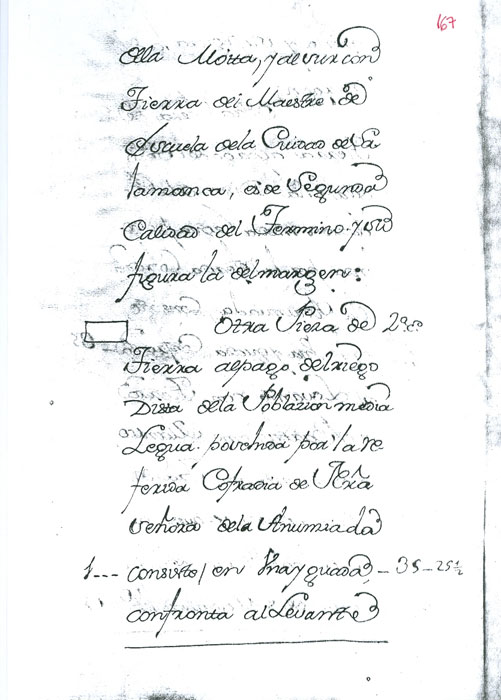 167
della Motta, y al Sur con
Tierra del Maestre de
Escuela dela Ciudad de Sa
lamanca, es de Segunda
Calidad del Termino. y su
figura la del margen:
Otra Pieza de 2ª
Tierra al pago del riego
Dista dela Poblazion media
Legua. posehida por la re
ferida Cofradia de Nrã
Señora dela Anumiada
1--- consiste/ en Una y quarta - 35 - 25½
confronta al Levante